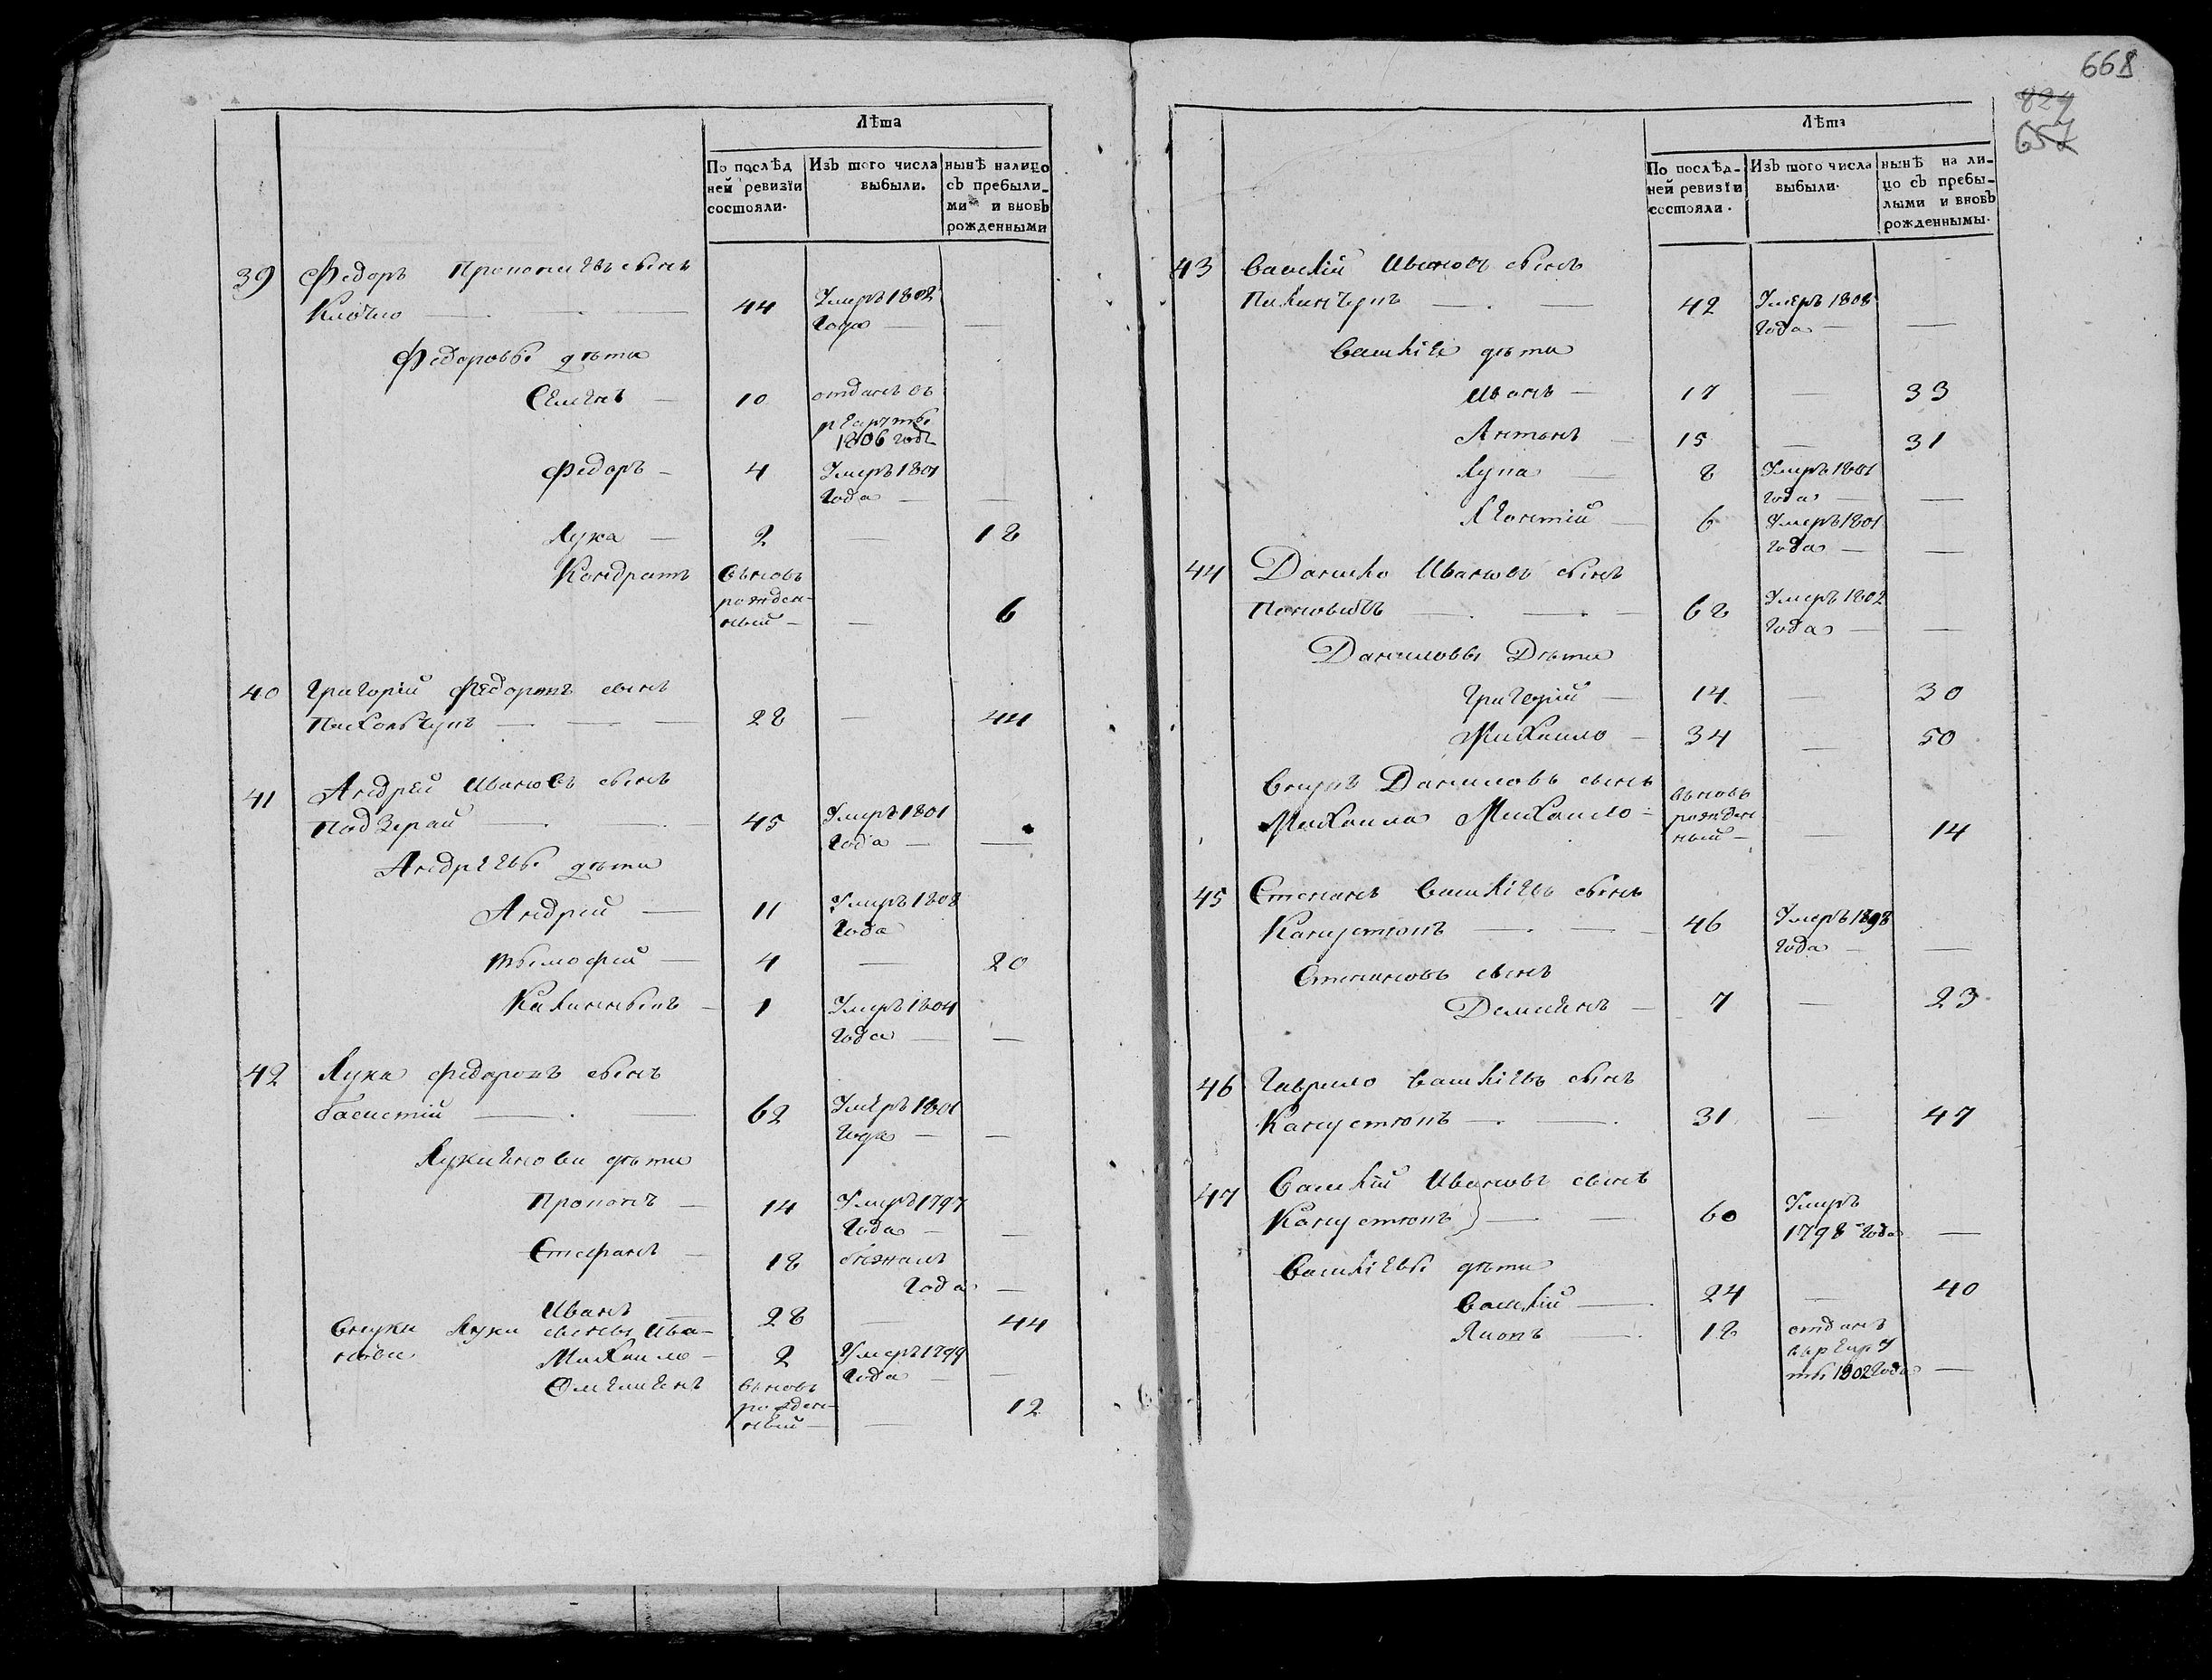 Лѣта
По послѣд
ней ревизїи
состояли.
Изъ того числа
выбыли.
нынѣ налицо
съ пребыли-
ми и вновь
рожденными
39 Федоръ сынъ
44 Умеръ 1802
Года —
Федоровы дѣти
Семенъ — 10 отданъ въ
рекруты
1806 года
Федоръ — 4 Умеръ 1801
Года — —
Лука — 2 — 18
Кондратъ вновь
рожден-
ный — — 6
40 Григорїй Федоровъ сынъ
28 — 44
41 Андрей Ивановъ сынъ
45 Умеръ 1801
Года — —
Андрѣевы дѣти
Андрей — 11 Умеръ 1808
Года
Тымофей — 4 — 20
1 Умеръ 1804
Года — —
42 Лука Федоровъ сынъ
62 Умеръ 1801
Года — —
дѣти
14 Умеръ 1797
Года — —
Стефанъ — 18 бѣжалъ
Года —
Иванъ 28 — 44
Внуки Луки Ива-
нови Михаило — 2 Умеръ 1799
Года — —
Омелиенъ вновь
рожден-
ный — — 12
668
829
657
Лѣта
По послѣд-
ней ревизїи
состояли.
Изъ того числа
выбыли.
нынѣ на ли-
цо съ пребы-
лыми и вновь
рожденными.
43 Василїй Ивановъ сынъ
42 Умеръ 1808
Года — —
дѣти
Иванъ — 17 — 33
Антонъ 15 — 31
8 Умеръ 1801
года — —
Леонтїй — 6 Умеръ 1801
года — —
44 Данило Ивановъ сынъ
68 Умеръ 1802
Года — —
Даниловы Дѣти
Григорїй — 14 — 30
Михаило — 34 — 50
Внукъ Даниловъ сынъ вновь
Михаила Михаило — рожден
ный — — 14
45 Степанъ Василїевъ сынъ
Капустюнъ — 46 Умеръ
года — —
Степановъ сынъ
Демиенъ — 7 — 23
46 Гаврило Василїевъ сынъ
Капустюнъ — 31 — 47
47 Василїй Ивановъ сынъ
Капустюнъ — 60 Умеръ
1798 года —
Василїевы дѣти
Василїй — 24 — 40
18 отданъ
въ рекру
ты 1802 Года —